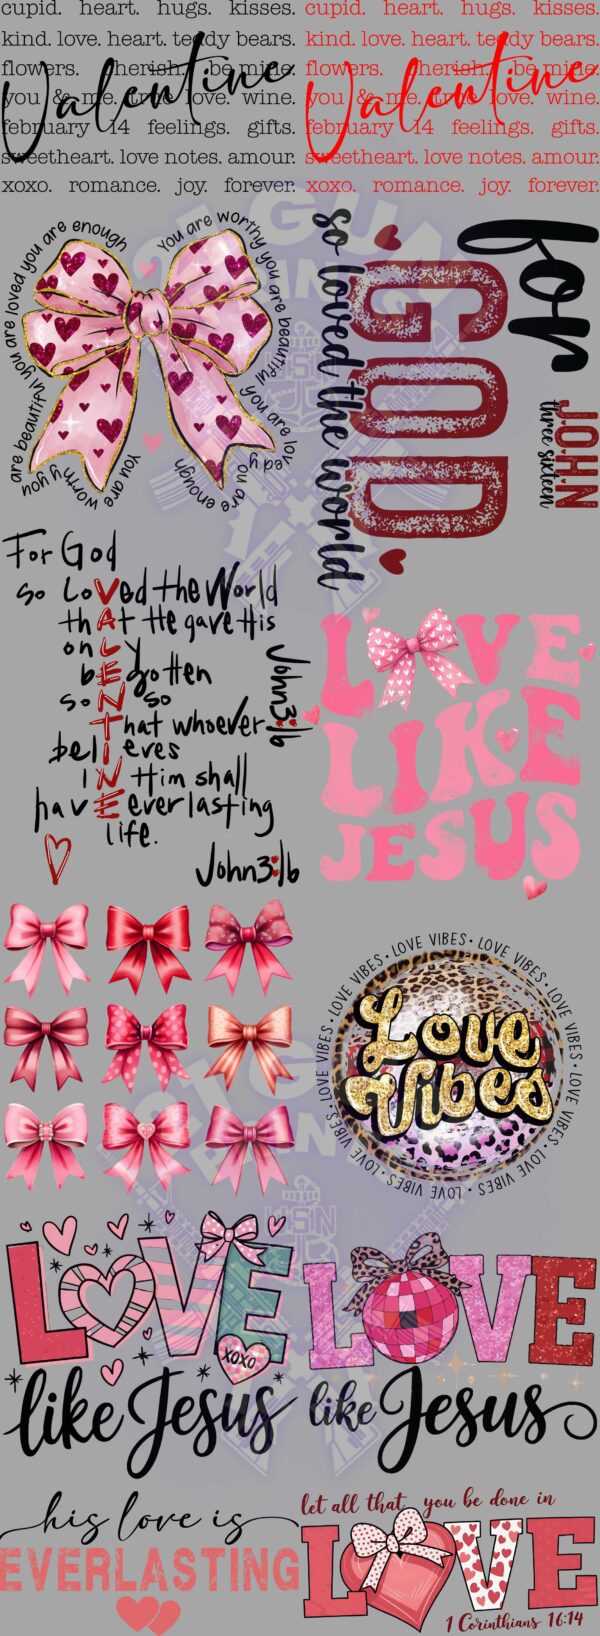 cupid. heart. hugs. kisses.
kind. love. heart. teddy bears.
flowers. cherish. be mine.
you & me. true love. wine.
february 14 feelings. gifts.
sweetheart. love notes. amour.
xoxo. romance. joy. forever.
Valentine
cupid. heart. hugs. kisses.
kind. love. heart. teddy bears.
flowers. cherish. be mine.
you & me. true love. wine.
february 14 feelings. gifts.
sweetheart. love notes. amour.
xoxo. romance. joy. forever.
Valentine
are beautiful you are loved you are enough
You are worthy you are beautiful you are loved
you are enough
You are worthy you
for
GOD
so loved the world
JOHN
three sixteen
For God
so Loved the World
that He gave His
only
begotten
son so
That whoever
believes
IN Him shall
have everlasting
life.
VALENTINE
John3:16
John3:16
LOVE
LIKE
JESUS
LOVE VIBES • LOVE VIBES • LOVE VIBES • LOVE VIBES • LOVE VIBES • LOVE VIBES • LOVE VIBES • LOVE VIBES •
Love
Vibes
LOVE
XOXO
like Jesus
LOVE
like Jesus
his love is
EVERLASTING
let all that you be done in
LOVE
1 Corinthians 16:14
USN
USN